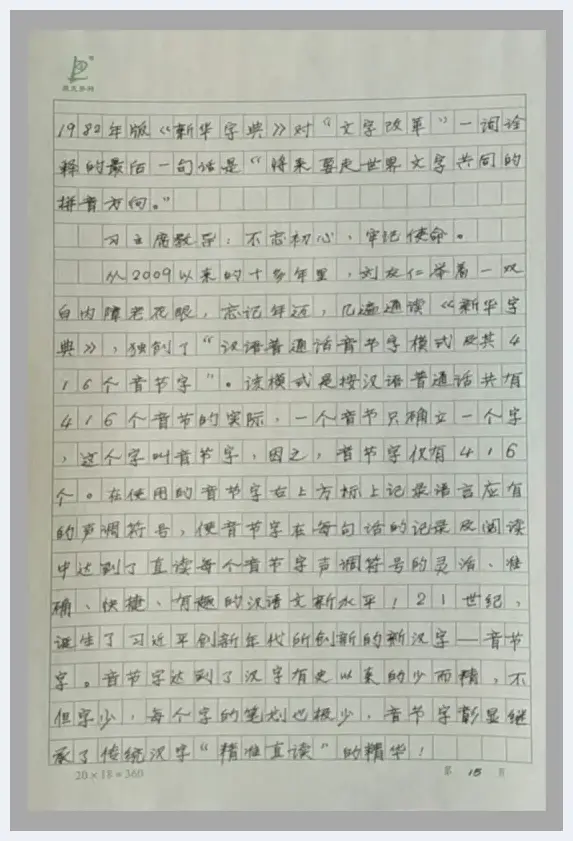 1982年版《新华字典》对“文字改革”一词诠
释的最后一句话是“将来要走世界文字共同的
拼音方向。”
习主席教导：不忘初心、牢记使命。
从2009以来的十多年里，刘友仁举着一双
白内障老花眼，忘记年迈，几遍通读《新华字
典》，独创了“汉语普通话音节字模式及其4
16个音节字”。该模式是按汉语普通话共有
416个音节的实际，一个音节只确立一个字
，这个字叫音节字，因之，音节字仅有416
个。在使用的音节字右上方标上记录语言应有
的声调符号，使音节字在每句话的记录及阅读
中达到了直读每个音节字声调符号的灵活、准
确、快捷、有趣的汉语文新水平！21世纪，
诞生了习近平创新年代所创新的新汉字——音节
字。音节字达到了汉字有史以来的少而精，不
但字少，每个字的笔划也极少，音节字彰显继
承了传统汉字“精准直读”的精华！
20×18=360
第 15 页